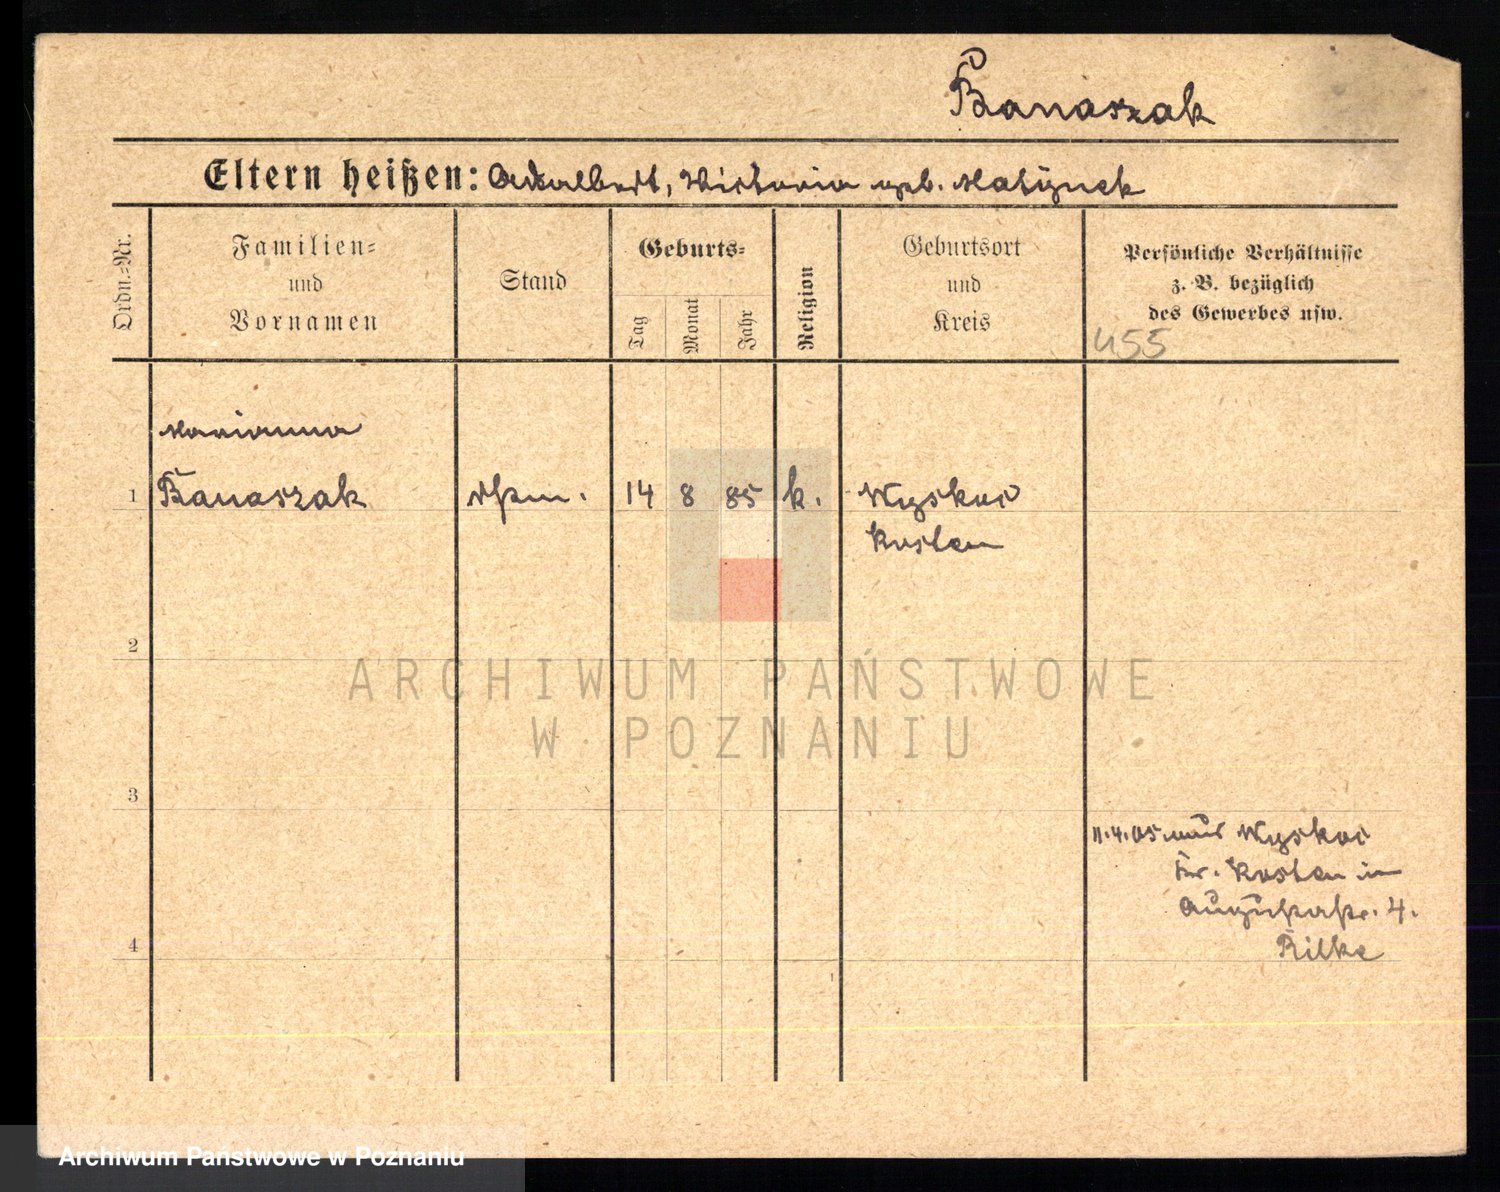 Banaszak
Eltern heißen: Adalbert, Victoria geb. Matÿnek
Ordn.=Nr.
Familien=
und
Vornamen
Stand
Geburts=
Tag
Monat
Jahr
Religion
Geburtsort
und
Kreis
Persönliche Verhältnisse
z. B. bezüglich
des Gewerbes usw.
455
Marianna
1 Banaszak 14 8 85 k. Wyskoc
Kosten
2
ARCHIWUM PAŃSTWOWE
W POZNANIU
3
11.4.05 aus Wyskoc
Kr. Kosten in
Augustastr. 4.
4
Rilke
Archiwum Państwowe w Poznaniu